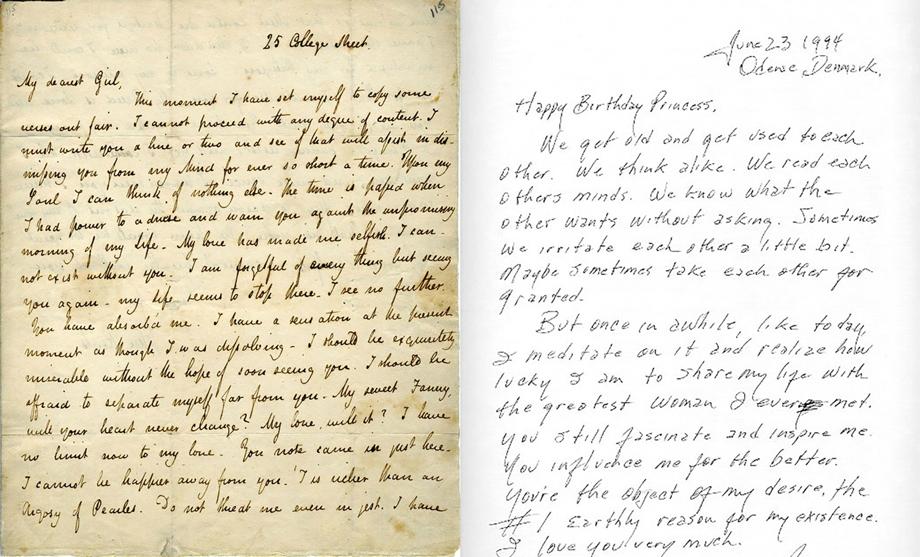 115
25 College Street
My dearest Girl,
This moment I have set myself to copy some
verses out fair. I cannot proceed with any degree of content. I
must write you a line or two and see if that will assist in dis-
missing you from my Mind for ever so short a time. Upon my
Soul I can think of nothing else. The time is passed when
I had power to advise and warn you against the unpromising
morning of my Life. My love has made me selfish. I can-
not exist without you. I am forgetful of every thing but seeing
you again - my life seems to stop there. I see no further.
You have absorb'd me. I have a sensation at the present
moment as though I was dissolving - I should be exquisitely
miserable without the hope of soon seeing you. I should be
affraid to separate myself far from you. My sweet Fanny,
will your heart never change? My love, will it? I have
no limit now to my love. You note came in just here.
I cannot be happier away from you. 'T is richer than an
Argosy of Pearles. Do not threat me even in jest. I have
June 23 1994
Odense Denmark.
Happy Birthday Princess,
We get old and get used to each
other. We think alike. We read each
others minds. We know what the
other wants without asking. Sometimes
we irritate each other a little bit.
Maybe sometimes take each other for
granted.
But once in awhile, like today,
I meditate on it and realize how
lucky I am to share my life with
the greatest woman I ever met.
You still fascinate and inspire me.
You influence me for the better.
You're the object of my desire, the
#1 Earthly reason for my existence.
I love you very much.